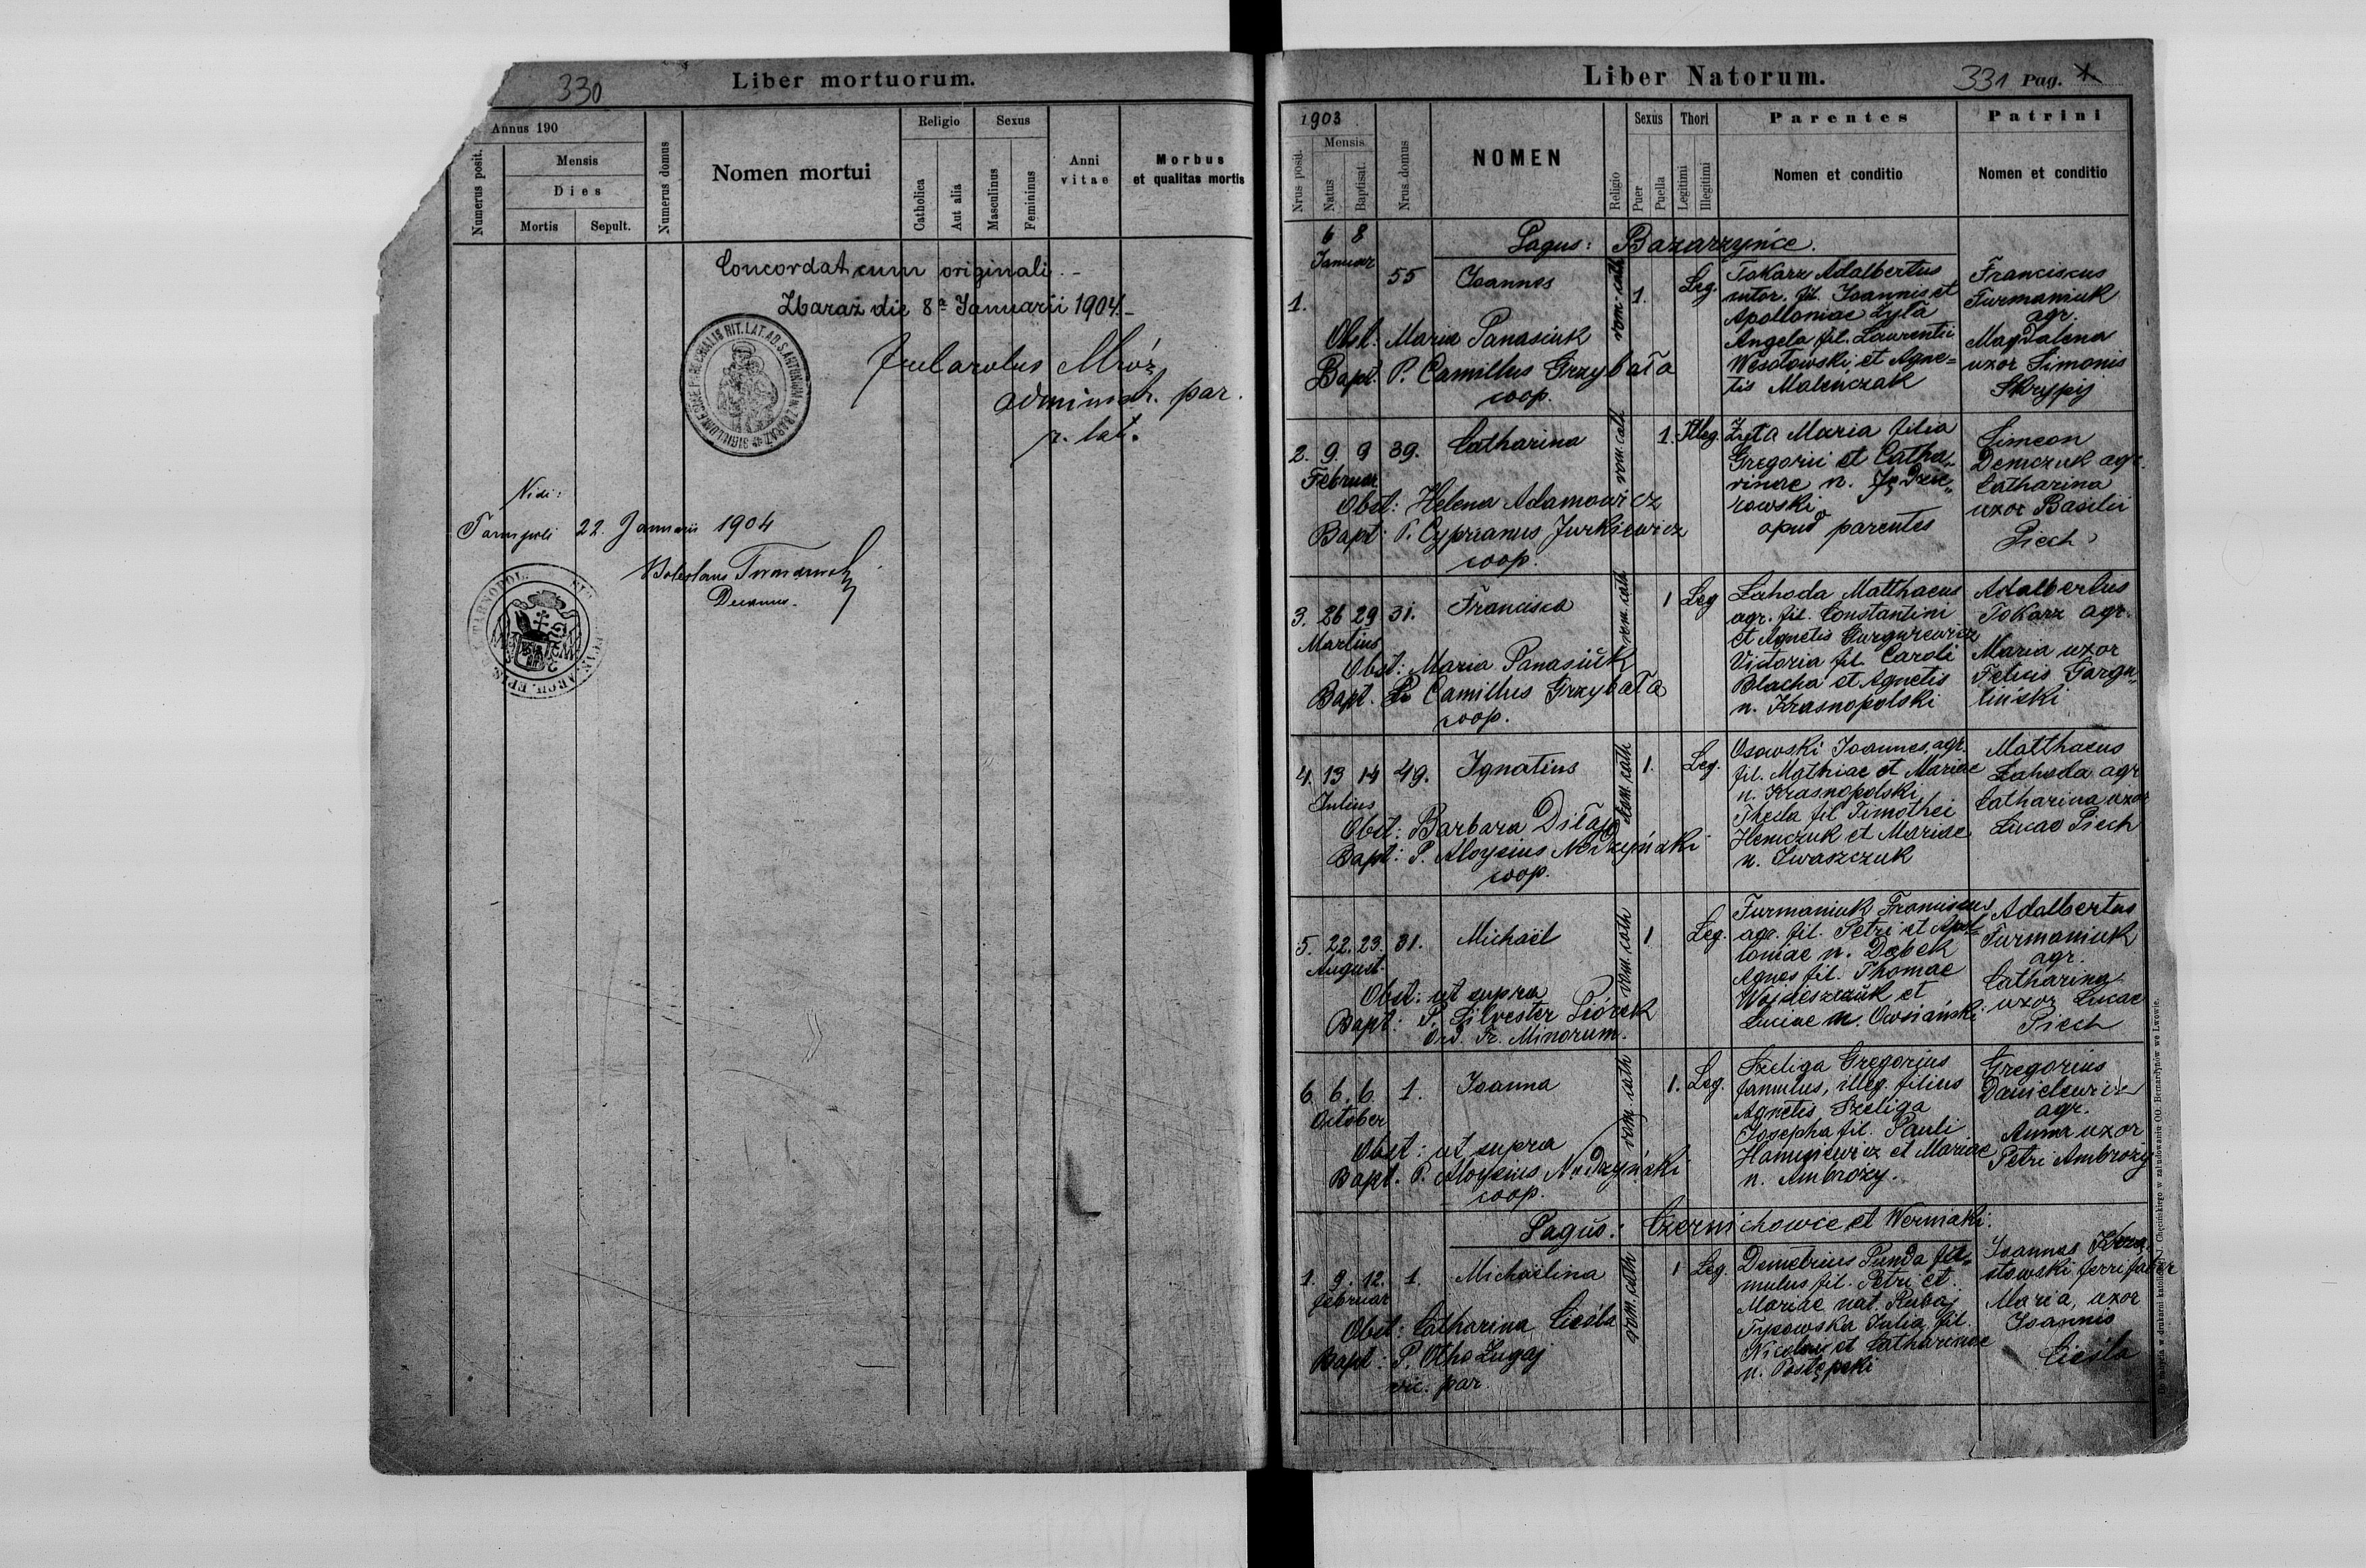 330
Liber mortuorum.
Annus 190
Numerus posit.
Mensis
Dies
Mortis
Sepult.
Numerus domus
Nomen mortui
Religio
Catholica
Aut alia
Sexus
Masculinus
Femininus
Anni vitae
Morbus
et qualitas mortis
Concordat cum originali.-
Zbaraż die 8ª Januarii 1904.-
Carolus Mróz
administr. par.
r. lat.
Vidi:
Tarnopoli 22. Januarii 1904
Boleslaus
Decanus.
Liber Natorum.
331 Pag. 1.
1903
Nrus posit.
Mensis
Natus
Baptisat.
Nrus domus
NOMEN
Religio
Sexus
Puer
Puella
Thori
Legitimi
Illegitimi
Parentes
Nomen et conditio
Patrini
Nomen et conditio
Pagus: Bazarzyńce.
1.
6 8
Januar
55
Joannes
rom. cath
1.
Leg.
Tokarz Adalbertus
sutor. fil. Joannis et
Apolloniae Zyła
Angela fil. Laurentii
Wesołowski et Agne=
tis Maleńczak
Franciscus
Furmaniuk
agr.
Magdalena
uxor Simonis
Skrypij
Obst: Maria Panasiuk
Bapt. P. Camillus Grzybała
coop.
2. 9. 9 39. Catharina
Februar
rom. cath
1. Illeg.
Zyła Maria filia
Gregorii et Catha„
rinae n. Jędrze„
rowski
apud parentes
Simeon
Demczuk agr.
Catharina
uxor Basilii
Piech
Obst: Helena Adamowicz
Bapt: P. Cyprianus Jurkiewicz
coop.
3. 26 29 31. Francisca
Martius
rom. cath
1 Leg
Lahoda Matthaeus
agr. fil. Constantini
et Agnetis Gurgurewicz
Victoria fil. Caroli
Blacha et Agnetis
n. Krasnopolski
Adalbertus
Tokarz agr.
Maria uxor
Felicis Gargu„
liński
Obst: Maria Panasiuk
Bapt. P. Camillus Grzybała
coop.
4. 13 14 49. Ignatius
Julius
Rom. cath
1. Leg.
Osowski Joannes, agr.
fil. Mathiae et Mariae
n. Krasnopolski
Thecla fil Timothei
Hemczuk et Mariae
n. Iwaszczuk
Matthaeus
Lahoda agr
Catharina uxor
Lucae Piech
Obst: Barbara Diłaj
Bapt: P. Aloysius Nudzyński
coop.
5. 22. 23. 31. Michaël
August.
rom. cath
1 Leg.
Furmaniuk Franciscus
agr. fil. Petri et Apol„
loniae n. Dąbek
Agnes fil. Thomae
Wojcieszczuk et
Luciae n. Owsiański
Adalbertus
Furmaniuk
agr.
Catharina
uxor Lucae
Piech
Obst: ut supra
Bapt: P. Silvester Piórek
Ord. Fr. Minorum.
6. 6. 6. 1. Joanna
October
rom. cath
1. Leg.
Szeliga Gregorius
famulus, illeg. filius
Agnetis Szeliga
Josepha fil. Pauli
Hamuniewicz et Mariae
n. Ambrozy.
Gregorius
Danielewicz
agr.
Anna uxor
Petri Ambrozy
Obst: ut supra
Bapt. P. Aloysius Nudzyński
coop.
Pagus: Czernichowce et Werniaki.
1. 9. 12. 1. Michaëlina
Februar
rom. cath
1 Leg.
Demetrius Punda fa„
mulus fil. Petri et
Mariae nat. Rubaj
Typowska Julia fil.
Nicolai et Catharinae
n. Postępski
Joannes
ferrifaber
Maria, uxor
Joannis
Cieśla
Obst: Catharina Cieśla
Bapt: P. Otho Zugaj
vic. par.